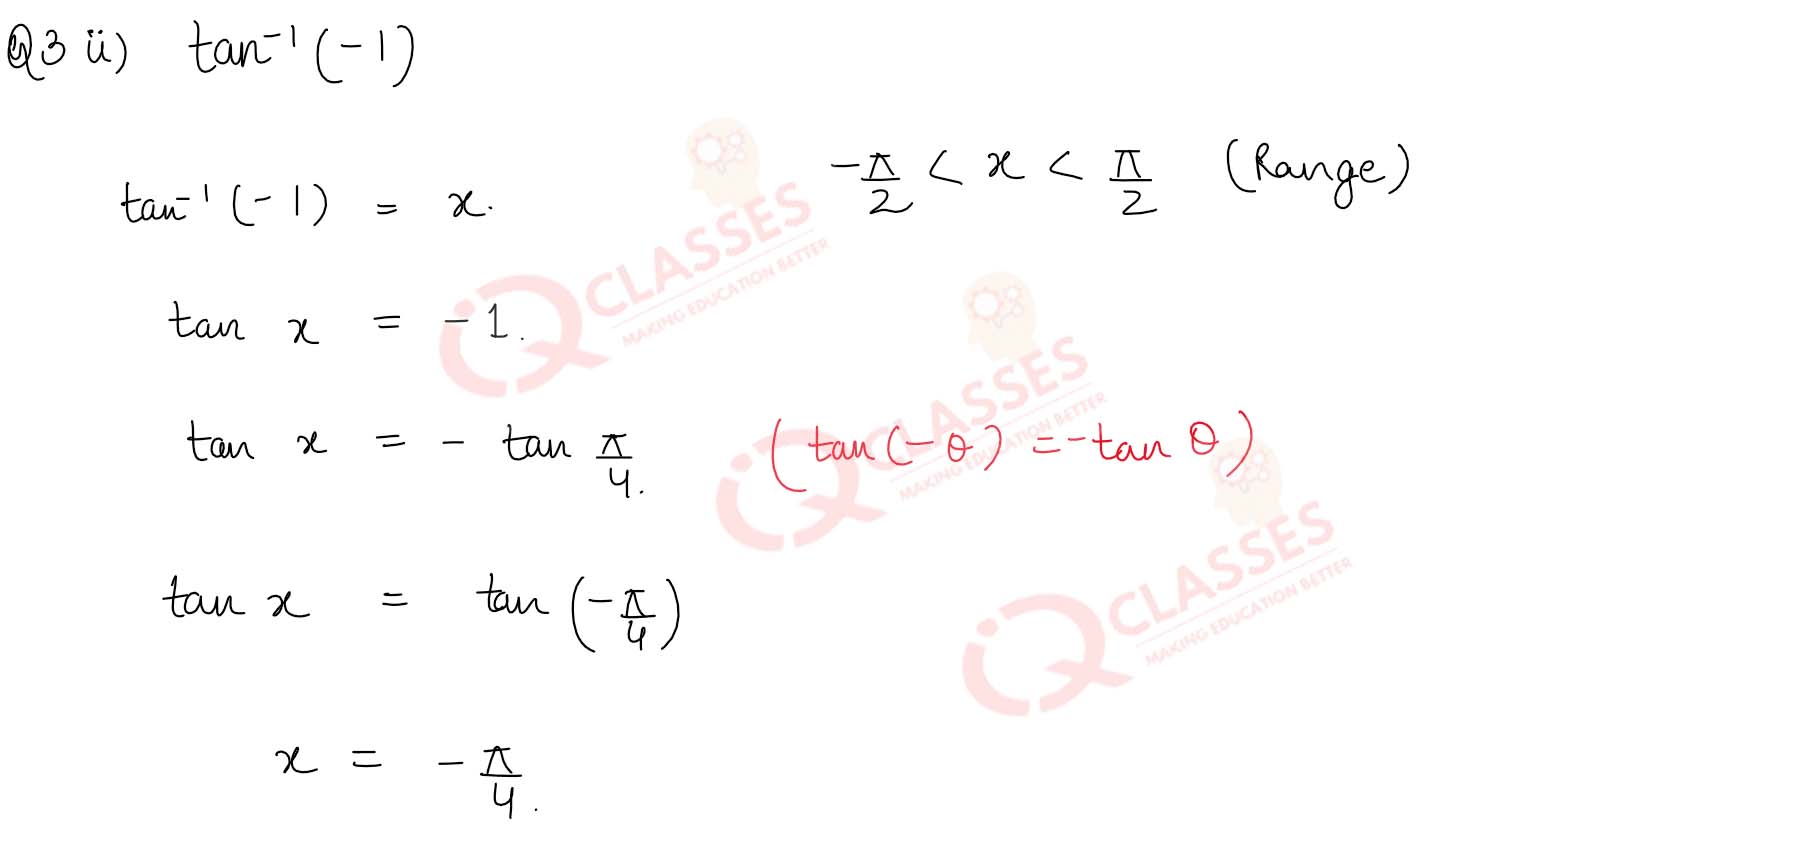 Q3 ii) tan⁻¹(-1)
tan⁻¹(-1) = x. -π/2 < x < π/2 (Range)
tan x = -1.
tan x = - tan π/4. (tan(-θ) = -tan θ)
tan x = tan(-π/4)
x = -π/4.
iQ CLASSES
MAKING EDUCATION BETTER
iQ CLASSES
MAKING EDUCATION BETTER
iQ CLASSES
MAKING EDUCATION BETTER